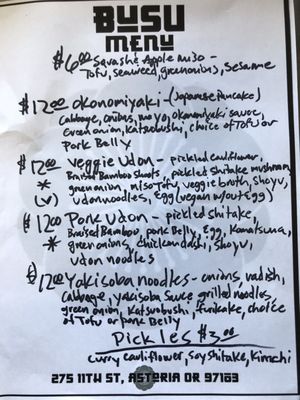 BUSU
MENU
$6.00 Squash & Apple Miso -
Tofu, seaweed, greenonions, Sesame
$12.00 Okonomiyaki - (Japanese Pancake)
Cabbage, onions, mayo, okonomiyaki sauce,
Green onion, Katsuobushi, choice of Tofu or
Pork Belly
$12.00 Veggie Udon - pickled cauliflower,
* Braised Bamboo shoots, pickled shitake mushroom
green onion, miso Tofu, veggie broth, Shoyu,
(v) udon noodles, Egg (vegan w/out Egg)
$12.00 Pork Udon - pickled shitake,
Braised Bamboo, pork Belly, Egg, Kamatsuna,
* green onions, chicken dashi, Shoyu,
Udon noodles
$12.00 Yakisoba noodles - onions, radish,
Cabbage, yakisoba sauce, grilled noodles,
green onion, Katsuobushi, furikake, choice
of Tofu or pork Belly
Pickles $3.00
curry cauliflower, soy shitake, Kimchi
275 11TH ST, ASTORIA OR 97103